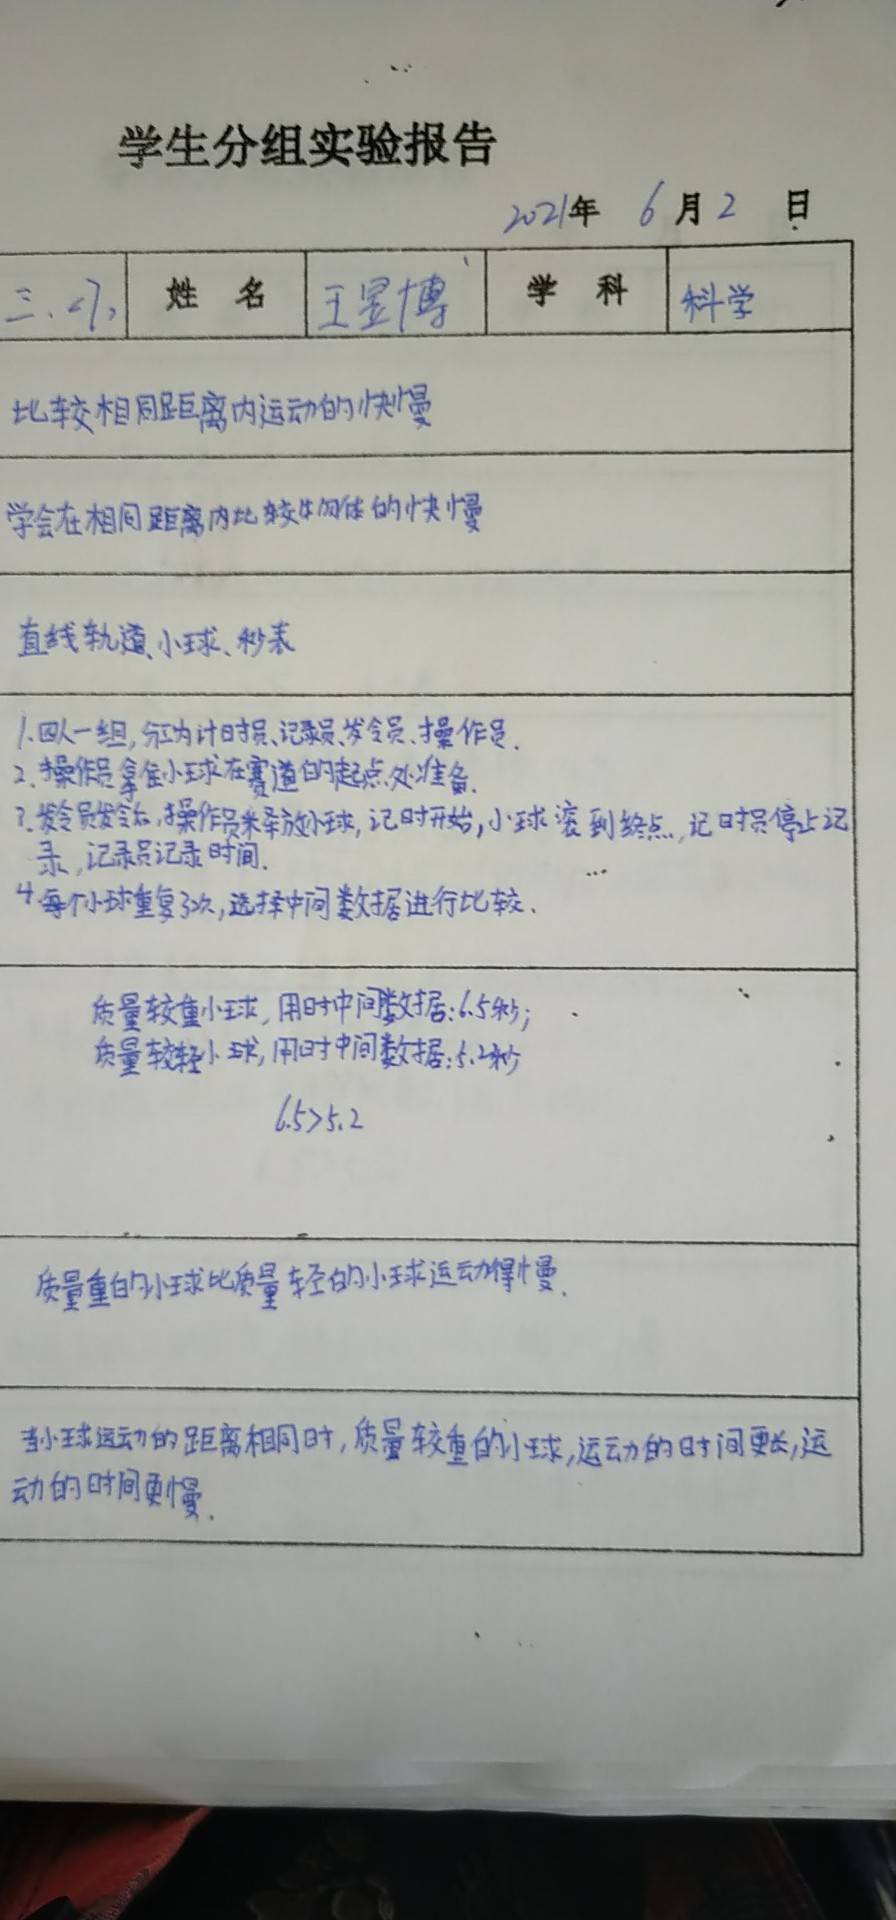 学生分组实验报告
2021年 6月2 日
三.<7> 姓 名 王昱博 学 科 科学
比较相同距离内运动的快慢
学会在相同距离内比较物体的快慢
直线轨道、小球、秒表
1.四人一组,分工为计时员、记录员、发令员、操作员.
2.操作员拿住小球在赛道的起点处准备.
3.发令员发令后,操作员释放小球,记时开始,小球滚到终点,记时员停止记
录,记录员记录时间.
4.每个小球重复3次,选择中间数据进行比较.
质量较重小球,用时中间数据:6.5秒;
质量较轻小球,用时中间数据:5.2秒
6.5>5.2
质量重的小球比质量轻的小球运动得慢.
当小球运动的距离相同时,质量较重的小球,运动的时间更长,运
动的时间更慢.